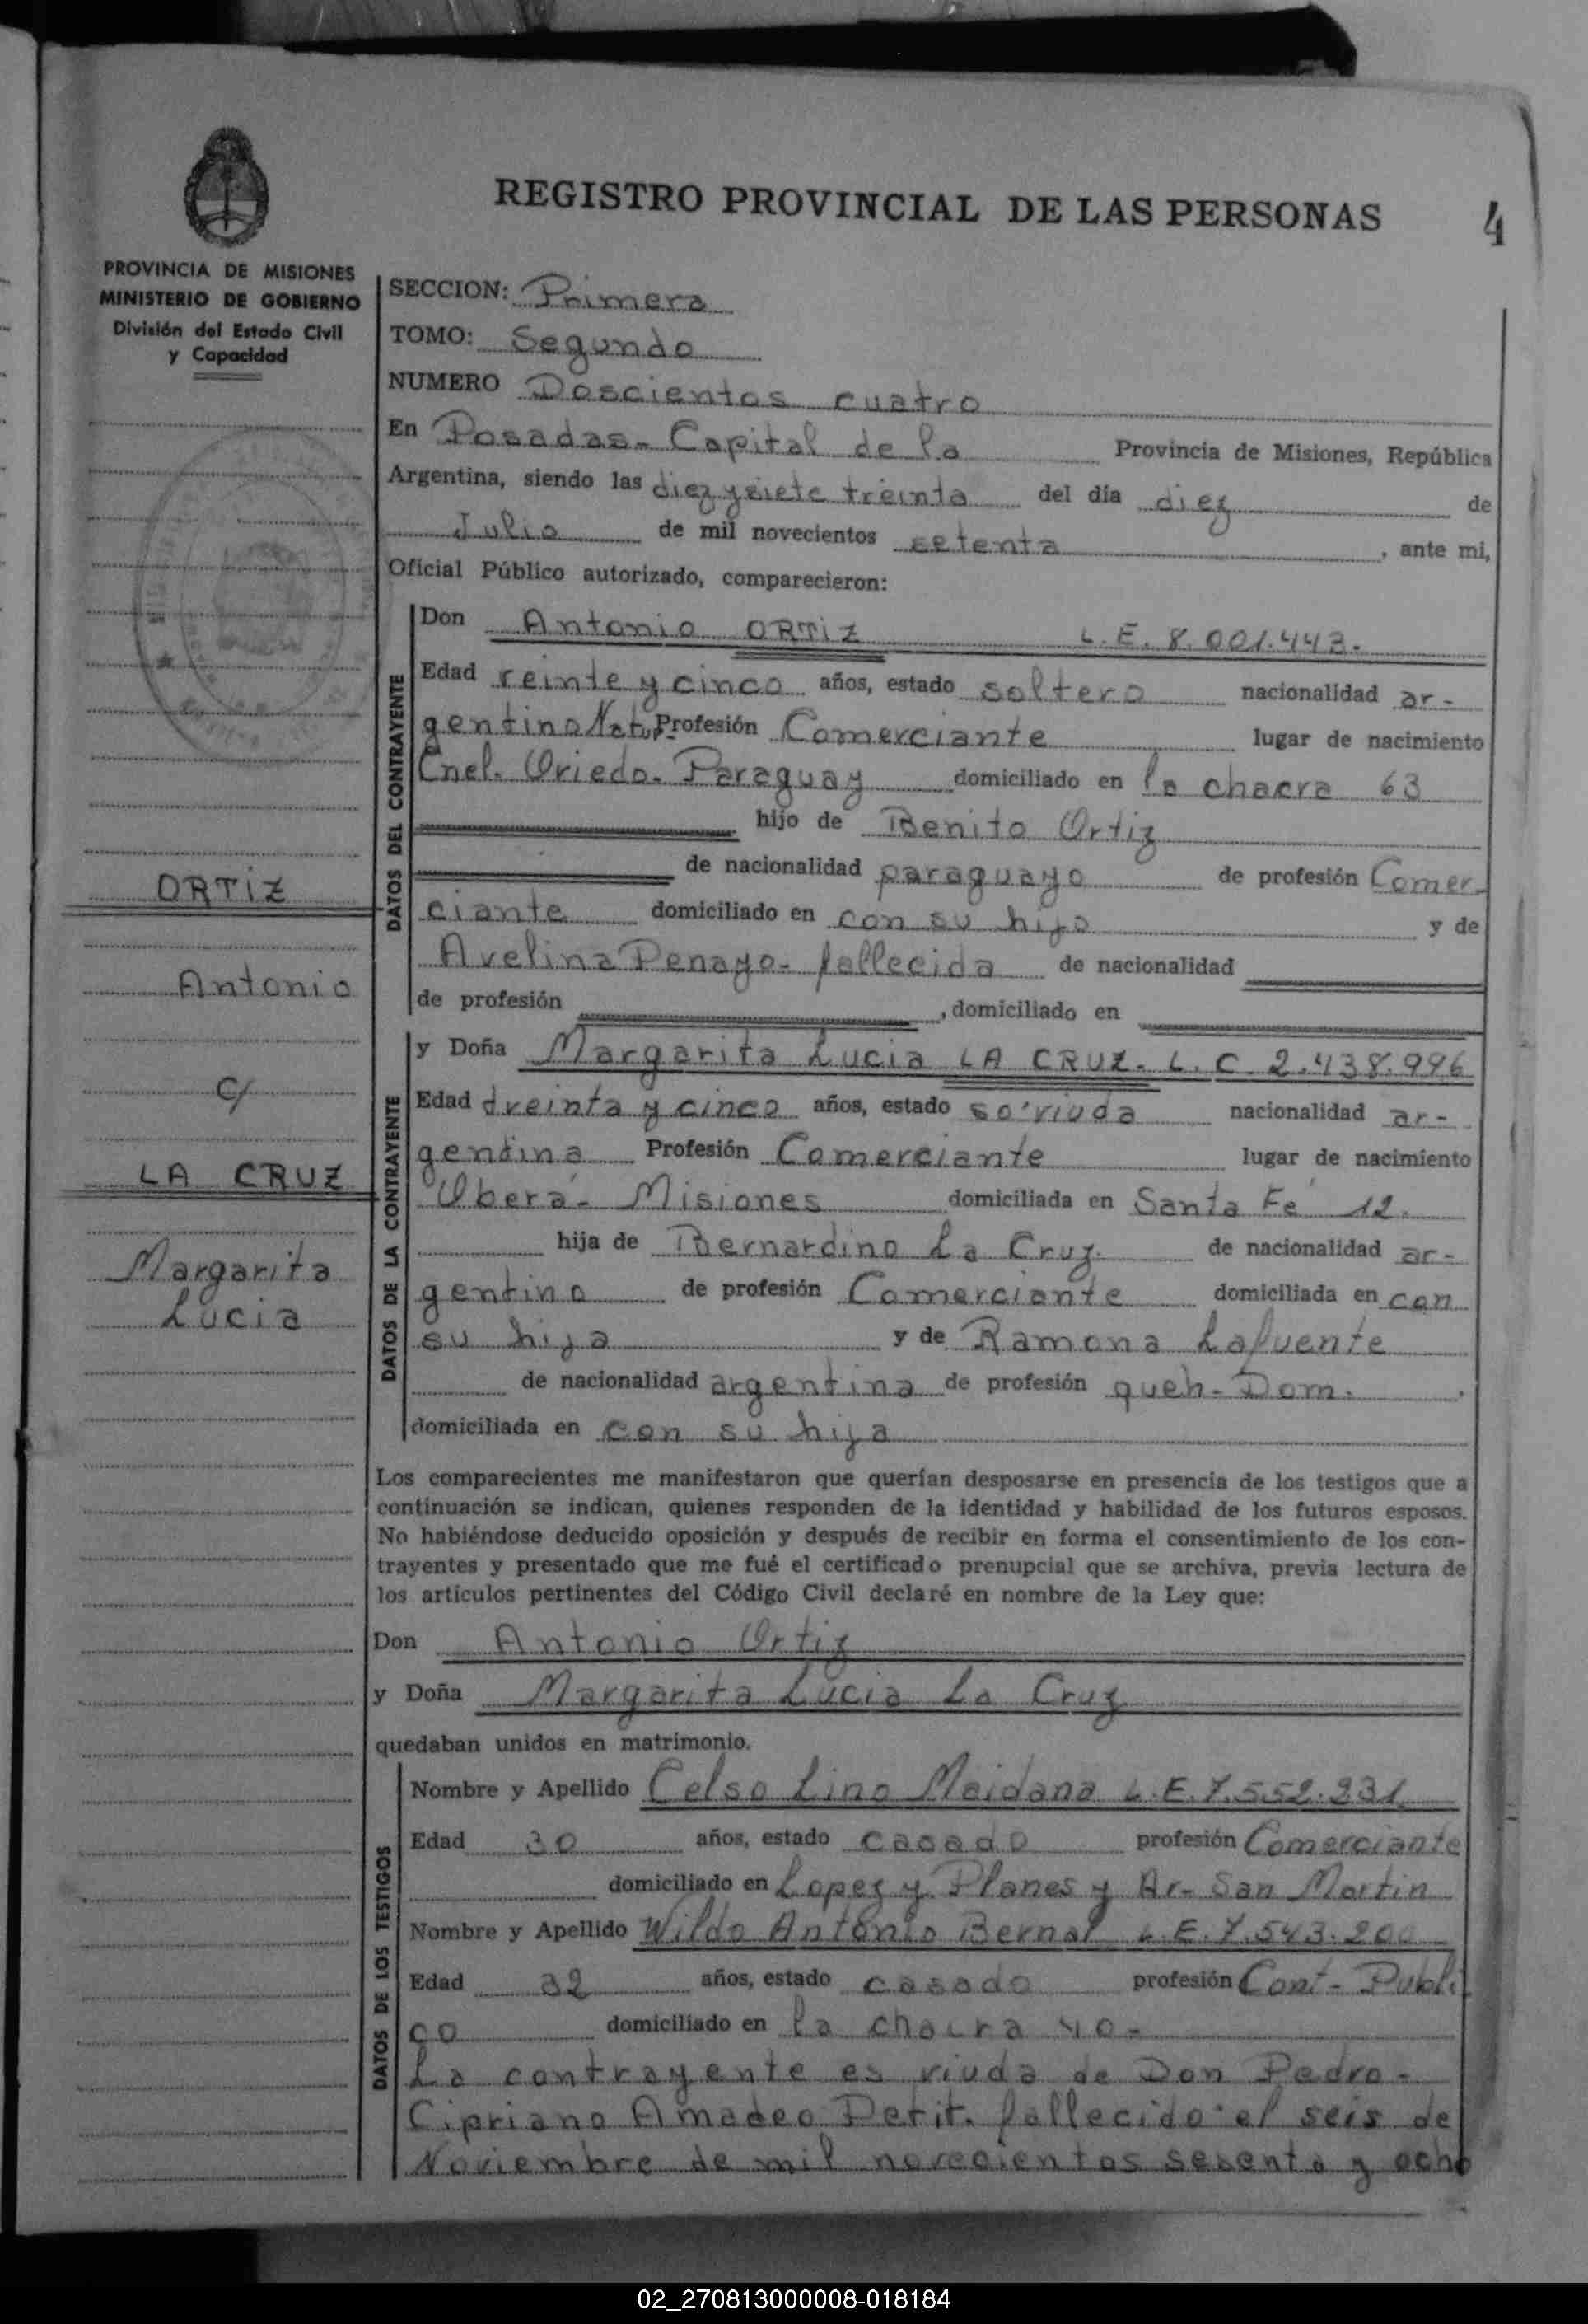 REGISTRO PROVINCIAL DE LAS PERSONAS
4
PROVINCIA DE MISIONES
MINISTERIO DE GOBIERNO
División del Estado Civil
y Capacidad
SECCION: Primera
TOMO: Segundo
NUMERO Doscientos cuatro
En Posadas- Capital de la Provincia de Misiones, República
Argentina, siendo las diez y siete treinta del día diez de
Julio de mil novecientos setenta, ante mi,
Oficial Público autorizado, comparecieron:
DATOS DEL CONTRAYENTE
Don Antonio ORTIZ L.E. 8.001.443.-
Edad veinte y cinco años, estado soltero nacionalidad ar-
gentino Natur- Profesión Comerciante lugar de nacimiento
Cnel. Oviedo- Paraguay domiciliado en la chacra 63
hijo de Benito Ortiz
de nacionalidad paraguayo de profesión Comer-
ciante domiciliado en con su hijo y de
Avelina Penayo- fallecida de nacionalidad
de profesión , domiciliado en
ORTIZ
Antonio
c/
LA CRUZ
Margarita
Lucia
DATOS DE LA CONTRAYENTE
y Doña Margarita Lucia LA CRUZ- L.C. 2.438.996
Edad treinta y cinco años, estado so'viuda nacionalidad ar-
gentina Profesión Comerciante lugar de nacimiento
Oberá- Misiones domiciliada en Santa Fé 12.
hija de Bernardino La Cruz. de nacionalidad ar-
gentino de profesión Comerciante domiciliada en con
su hija y de Ramona Lafuente
de nacionalidad argentina de profesión queh- Dom.
domiciliada en con su hija
Los comparecientes me manifestaron que querían desposarse en presencia de los testigos que a
continuación se indican, quienes responden de la identidad y habilidad de los futuros esposos.
No habiéndose deducido oposición y después de recibir en forma el consentimiento de los con-
trayentes y presentado que me fué el certificado prenupcial que se archiva, previa lectura de
los artículos pertinentes del Código Civil declaré en nombre de la Ley que:
Don Antonio Ortiz
y Doña Margarita Lucia La Cruz
quedaban unidos en matrimonio.
DATOS DE LOS TESTIGOS
Nombre y Apellido Celso Lino Maidana L.E. 7.552.231
Edad 30 años, estado casado profesión Comerciante
domiciliado en Lopez y Planes y Av- San Martin
Nombre y Apellido Wildo Antonio Bernal L.E. 7.543.200
Edad 32 años, estado casado profesión Cont- Publi
co domiciliado en la chacra 40-
La contrayente es viuda de Don Pedro-
Cipriano Amadeo Petit. fallecido el seis de
Noviembre de mil novecientos sesenta y ocho
02_270813000008-018184